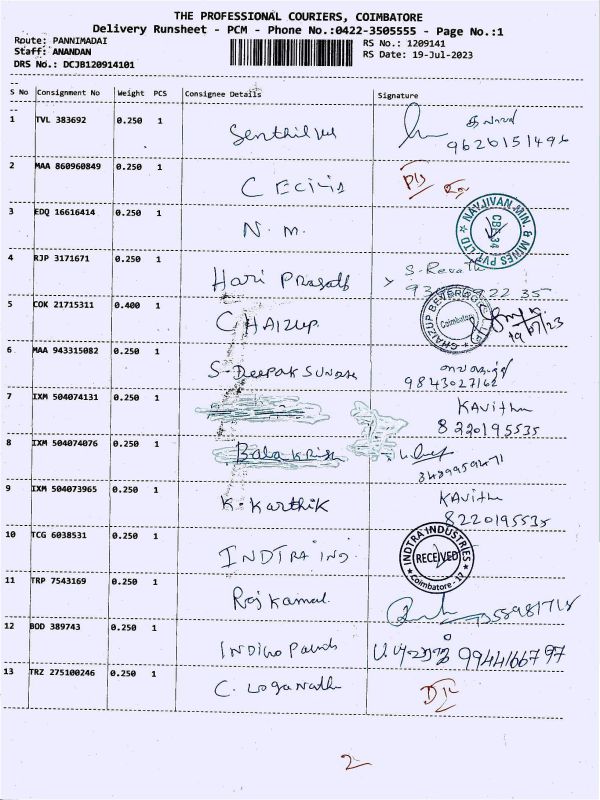 THE PROFESSIONAL COURIERS, COIMBATORE
Delivery Runsheet - PCM - Phone No.:0422-3505555 - Page No.:1
Route: PANNIMADAI
RS No.: 1209141
Staff: ANANDAN
RS Date: 19-Jul-2023
DRS No.: DCJB120914101
S No Consignment No Weight PCS Consignee Details Signature
1 TVL 383692 0.250 1 Senthilvel
9626151496
2 MAA 860960849 0.250 1 CECILIS
3 EDQ 16616414 0.250 1 N. M. NAVJIVAN MIN. & MINES PVT LTD CBE-34
4 RJP 3171671 0.250 1 Hari Prasath S. Revathi
5 COK 21715311 0.400 1 CHAIZUP CHAIZUP BEVERAGES LLP Coimbatore
19/07/23
6 MAA 943315082 0.250 1 S-Deepak SUNDAR
9843027162
7 IXM 504074131 0.250 1 Kavitha
8220195535
8 IXM 504074076 0.250 1 Balakrish
9 IXM 504073965 0.250 1 K. Karthik Kavitha
8220195535
10 TCG 6038531 0.250 1 INDTRA IND. INDTRA INDUSTRIES RECEIVED Coimbatore - 17
11 TRP 7543169 0.250 1 Rajkamal
12 BOD 389743 0.250 1 INDIGO Paints 9944166797
13 TRZ 275100246 0.250 1 C. Loganath
2